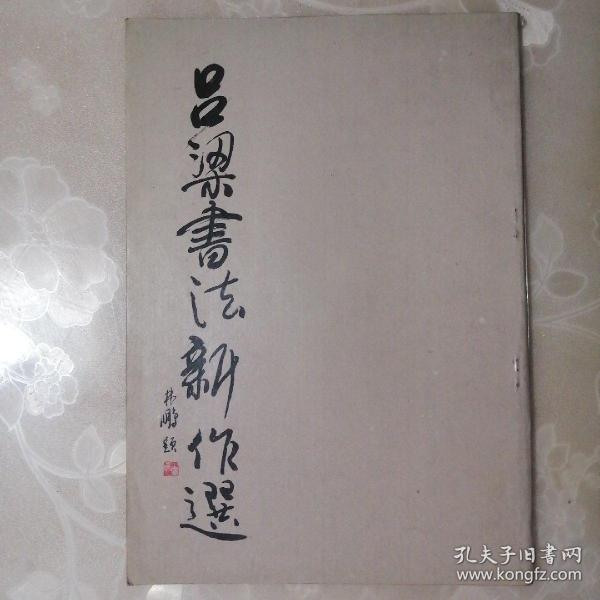 吕梁書法新作選
林鵬題
孔夫子旧書网
www.kongfz.com